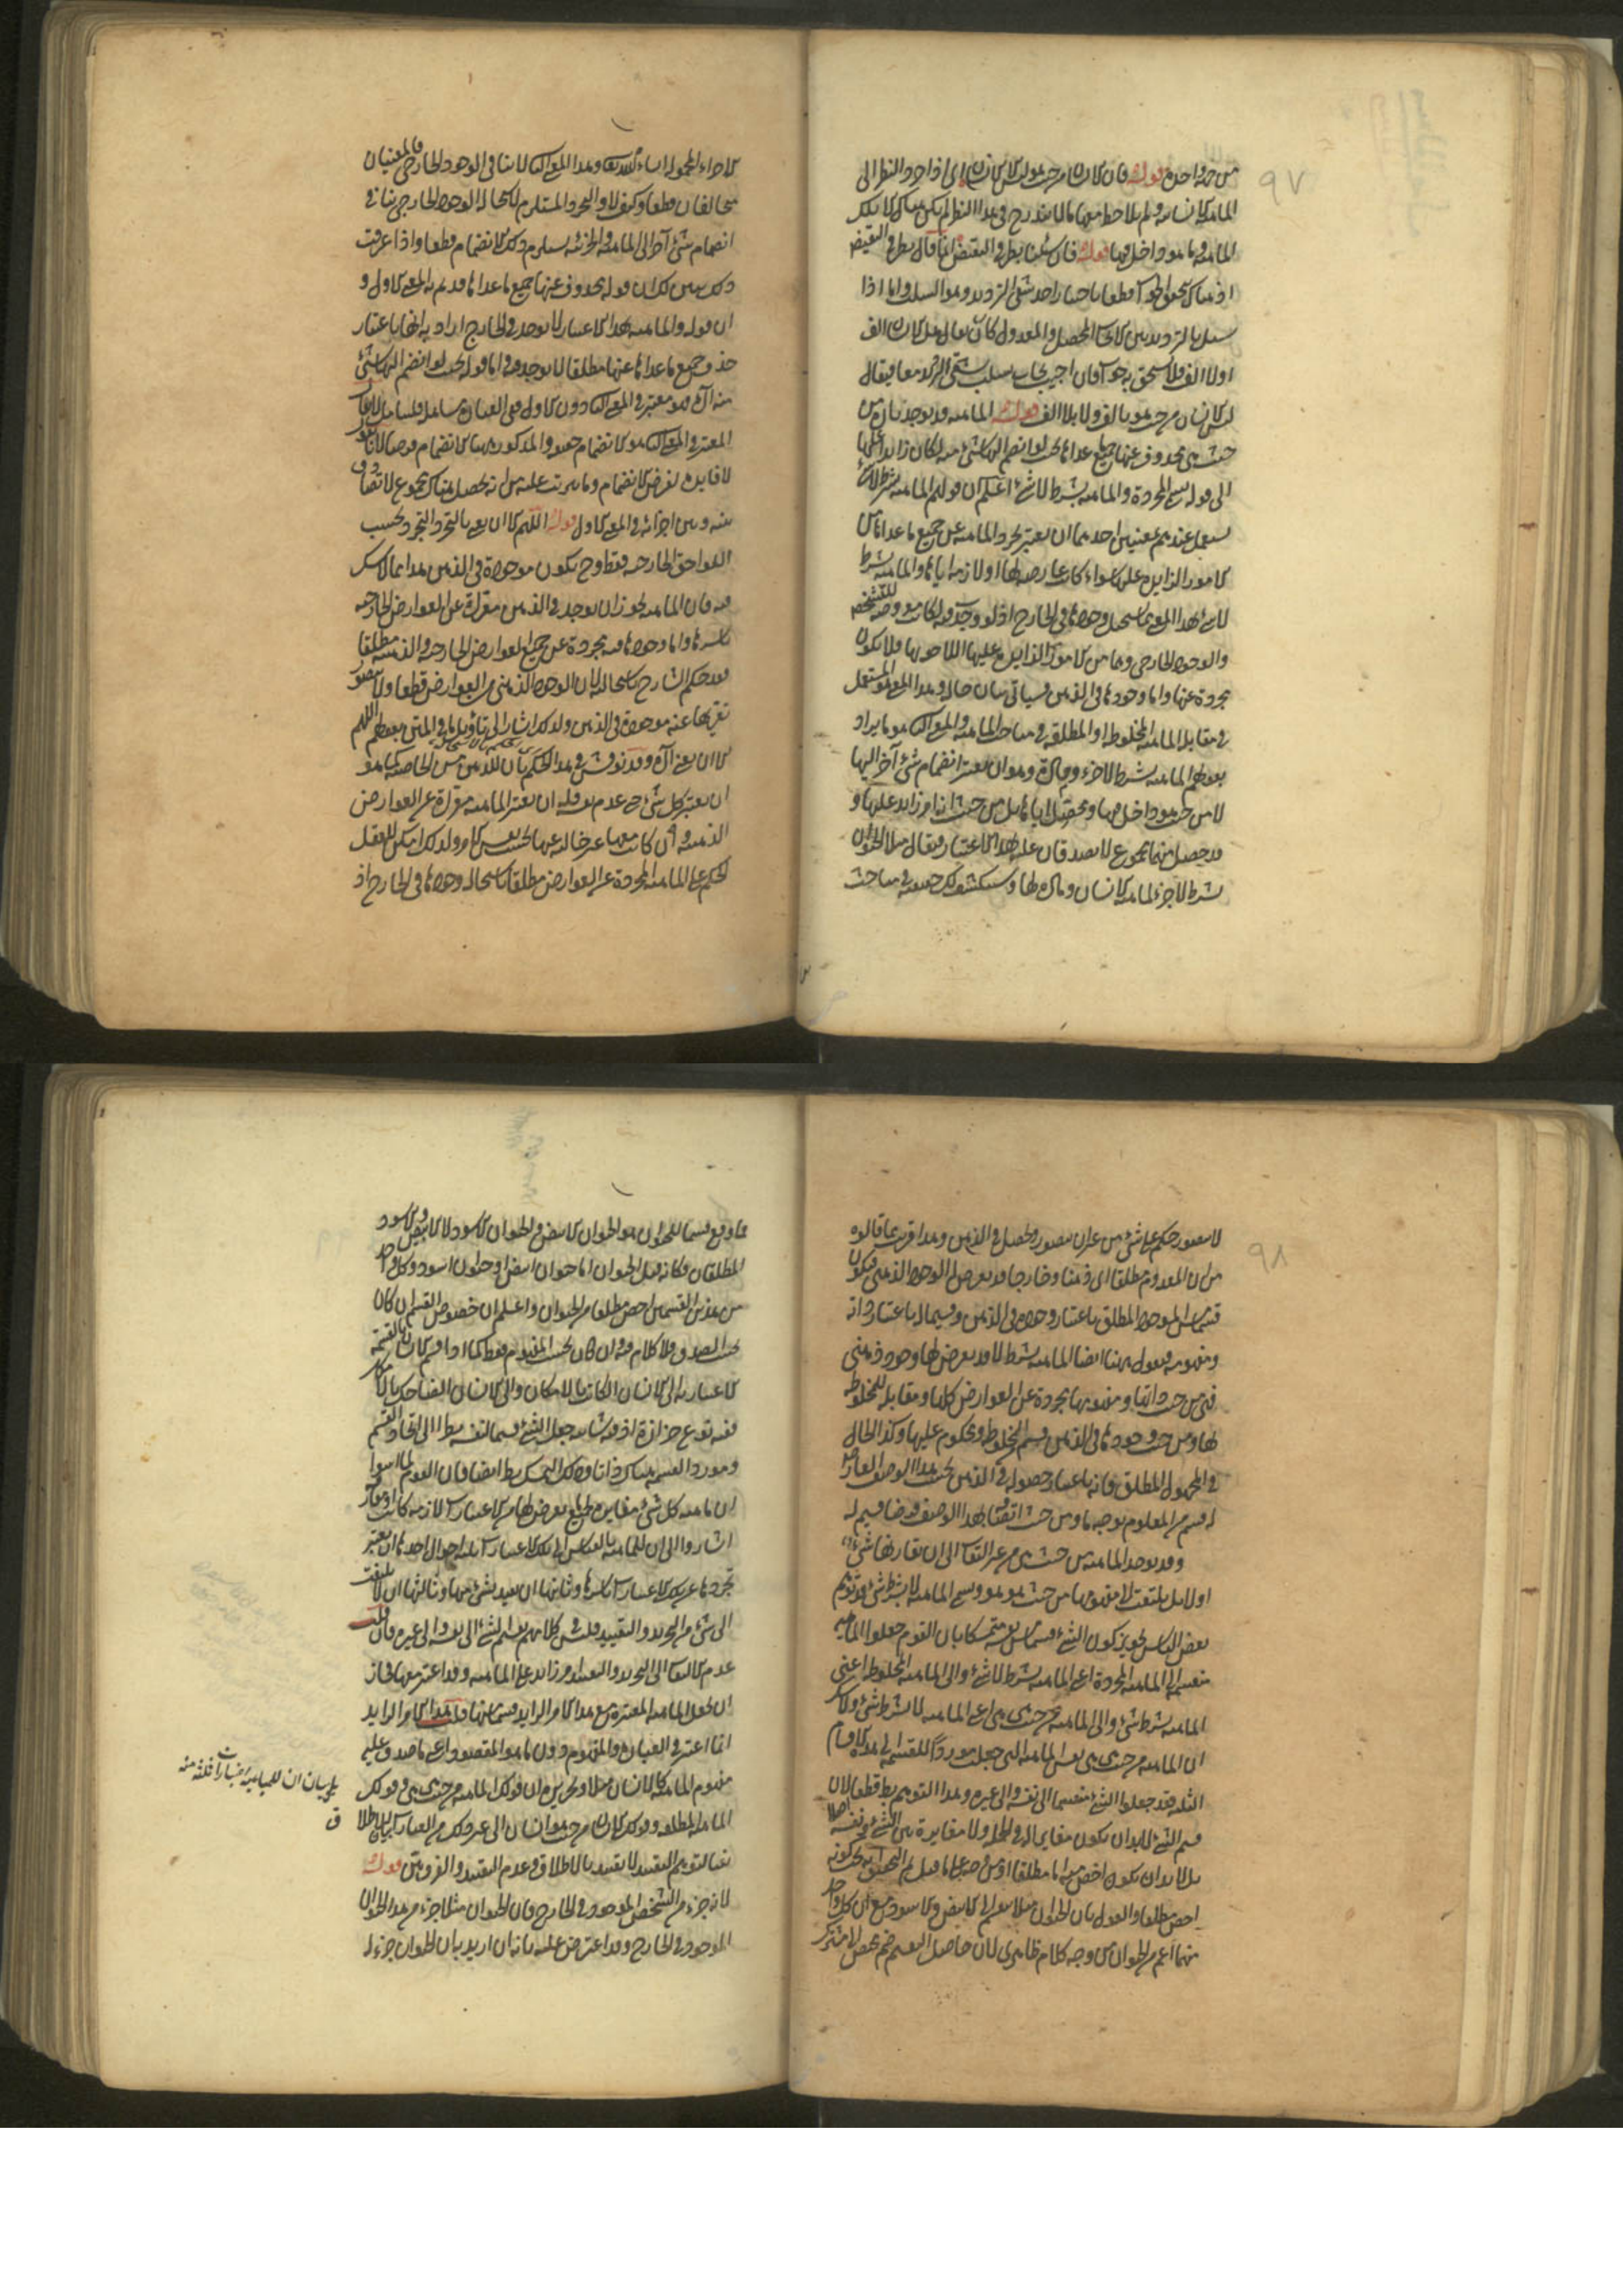 من جهة واحدة قوله فان الانسان من حيث هو ليس الانسان اى اذا جرد النظر الى
الماهية الانسانية ولم يلاحظ معها ما لا يندرج فى هذا النظر لم يكن هناك الا تلك
الماهية وما هو داخل فيها قوله فان سئلنا بطرفى النقيض انما قال بطرفى النقيض
اذ هناك يستحق الجواب قطعا باختيار احد شقى الترديد وهو السلب واما اذا
سئل بالترديد بين الايجاب المحصل والمعدول كان يقال هل الانسان الف
اولا الف فلا يستحق به جوابا فان اجيب يجاب بسلب شقى الترديد معا فيقال
ليس الانسان من حيث هو بالف ولا بلا الف قوله الماهية قد يوجد بان من
حيث هى محذوف عنها جميع ما عداها بحيث لو انضم اليها شئ منه لكان زائدا عليها
الى قوله تسمى المجردة والماهية بشرط لا شئ اعلم ان قولهم الماهية بشرط لا شئ
يستعمل عندهم بمعنيين احدهما ان يعتبر تجرد الماهية عن جميع ما عداها من
الامور الزايدة عليها سواء كانت عارضة لها او لازمة اياها والماهية بشرط
لا شئ بهذا المعنى مما يستحيل وجودها فى الخارج اذ لو وجدت فيه لكانت معروضة للتشخص
والوجود الخارجى وهما من الامور الزايدة عليها اللاحقة بها فلا يكون
مجردة عنها واما وجودها فى الذهن فسيأتى بيان حاله وهذا المعنى هو المستعمل
فى مقابلة الماهية المخلوطة او المطلقة فى مباحث الماهية والمعنى الثانى هو ما يراد
بقولهم الماهية بشرط لا جزء ومادة وهو ان يعتبر انضمام شئ آخر اليها
لا من حيث هو داخل فيها ومحصل اياها بل من حيث انه امر زايد عليها و
قد حصل منهما مجموع لا يصدق ان عليه بهذا الاعتبار فيقال مثلا الحيوان
بشرط لا جزء لماهية الانسان ومادة لها وسيكشف لك حقيقته فى مباحث
الاجزاء المحمولة ان شاء الله تعالى وهذا المعنى الثانى لا ينافى الوجود الخارجى فالمعنيان
متخالفان قطعا وكيف لا والتجرد المستلزم لاستحالة الوجود الخارجى ينافى
انضمام شئ آخر الى الماهية والجزئية يستلزم ذلك الانضمام قطعا واذا عرفت
ذلك تبين لك ان قوله محذوف عنها جميع ما عداها قد تم به المعنى الاول و
ان قوله والماهية بهذا الاعتبار لا توجد فى الخارج اراد به انها باعتبار
حذف جميع ما عداها عنها مطلقا لا توجد فيه واما قوله بحيث لو انضم اليها شئ
منه آه فهو معتبر فى المعنى الثانى دون الاول ففى العبارة تساهل فليتأمل
المعتبر فى المعنى الثانى هو الانضمام حقيقة والمذكور ههنا الانضمام فرضا لانا نقول
لا فايدة لفرض الانضمام وما يترتب عليه من انه يحصل هناك مجموع لا تصادق
بينه وبين اجزائه فى المعنى الاول قوله اللهم الا ان يعنى بالتجرد التجرد بحسب
اللواحق الخارجية فقط وح يكون موجودة فى الذهن هذا مما لا شك
فيه فان الماهية يجوز ان يوجد فى الذهن معراة عن العوارض الخارجية
باسرها واما وجودها فيه مجردة عن جميع العوارض الخارجية والذهنية مطلقا
فقد حكم الشارح باستحالته لان الوجود الذهنى من العوارض قطعا ولا يتصور
تعريها عنه موجودة فى الذهن ولذلك اشار الى تأويل ما فى المتن بقوله اللهم
الا ان يعنى آه وقد نوقش فى هذا الحكم بان للذهن من الخاصة كما هو
ان يعتبر كل شئ حتى عدم نفسه فله ان يعتبر الماهية معراة عن العوارض
الذهنية وان كانت معها غير خالية عنها بحسب نفس الامر ولذلك امكن للعقل
الحكم على الماهية المجردة عن العوارض مطلقا باستحالة وجودها فى الخارج اذ
لا يتصور حكم على شئ من غير ان يتصور ويحصل فى الذهن وهذا قريب مما قالوه
من ان المعدوم مطلقا اى ذهنا وخارجا قد يعرض له الوجود الذهنى فيكون
قسما من الموجود المطلق باعتبار وجوده فى الذهن وقسيما له باعتبار ذاته
ومفهومه فيقول ههنا ايضا الماهية بشرط لا قد يعرض لها وجود ذهنى
فهى من حيث ذاتها ومفهومها مجردة عن العوارض كلها ومقابلة للمخلوطة
لها ومن حيث وجودها فى الذهن قسم المخلوطة ومحكوم عليها وكذا الحال
فى المجهول المطلق فانه باعتبار حصوله فى الذهن بحسب هذا الوصف العارض
له قسم من المعلوم بوجه ما ومن حيث اتصافه بهذا الوصف فرضا قسيم له
وقد يوجد الماهية من حيث هى من غير التفات الى ان يقارنها شئ
اولا بل يلتفت الى مفهومها من حيث هو هو وتسمى الماهية لا بشرط شئ وتوهم
بعض الناس تجويز كون الشئ قسما من نفسه متمسكا بان القوم جعلوا الماهية
منقسمة الى الماهية المجردة اعنى الماهية بشرط لا شئ والى الماهية المخلوطة اعنى
الماهية بشرط شئ والى الماهية من حيث هى هى اعنى الماهية لا بشرط شئ ولا شك
ان الماهية من حيث هى هى نفس الماهية التى جعلت موردا للقسمة الى هذه الاقسام
الثلثة فقد جعلوا الشئ منقسما الى نفسه والى غيره وهذا التوهم باطل قطعا لان
قسم الشئ لا بد ان يكون مغايرا له فى الجملة ولا مغايرة بين الشئ ونفسه اصلا
بل لا بد ان يكون اخص منه اما مطلقا او من وجه على ما قيل ثم التحقيق انه يجب كونه
اخص مطلقا والقول بان الحيوان مثلا ينقسم الى الابيض والاسود مع ان كل واحد
منهما اعم من الحيوان من وجه كلام ظاهرى لان حاصل التقسيم ضم مخصص لا مشترك
فما وقع قسما للحيوان هو الحيوان الابيض والحيوان الاسود لا الابيض والاسود
المطلقان فكانه قيل الحيوان اما حيوان ابيض او حيوان اسود وكل واحد
من هذين القسمين اخص مطلقا من الحيوان واعلم ان خصوص القسم ان كان
بحسب الصدق فلا كلام فيه وان كان بحسب المفهوم فقط كما اذا قسم الانسان بالقسمة
الاعتبارية الى الانسان الكاتب بالامكان والى الانسان الضاحك بالامكان
ففيه نوع حزازة اذ فيه شائبة جعل الشئ قسما لنفسه نظرا الى اتحاد القسم
ومورد القسمة هناك ذاتا وذلك التمسك باطل ايضا فان القوم لما اثبتوا
ان ماهية كل شئ مغايرة لجميع ما يعرض لها من الاعتبارات لازمة كانت او مفارقة
اشاروا الى ان للماهية بالقياس الى تلك الاعتبارات ثلثة احوال احدها ان يعتبر
تجردها عن تلك الاعتبارات باسرها وثانيها ان يقيد بشئ منها وثالثها ان لا يلتفت
الى شئ من التجريد والتقييد فليس فى كلامهم تقسيم الشئ الى نفسه والى غيره فان قلت
عدم الالتفات الى التجريد والتقييد امر زايد على الماهية وقد اعتبر معها فجاز
ان تجعل الماهية المعتبرة مع هذا الامر الزايد قسما منها قلت هذا الامر الزايد
انما اعتبر فى العبارة والمفهوم دون ما هو المقصود اعنى ما صدق عليه
مفهوم الماهية كالانسان مثلا وتحريره ان قولك الماهية من حيث هى هى وقولك
الماهية المطلقة وقولك الانسان من حيث هو انسان الى غير ذلك من العبارات
نفيا لتوهم التقييد لا تقييد بالاطلاق وعدم التقييد والفرق بين قوله
لانه جزء من الشخص الموجود فى الخارج فان الحيوان مثلا جزء من هذا الحيوان
الموجود فى الخارج وقد اعترض عليه بانه ان اريد بان الحيوان جزء له
بل بيان ان للماهية اعتبارات ثلثة منه